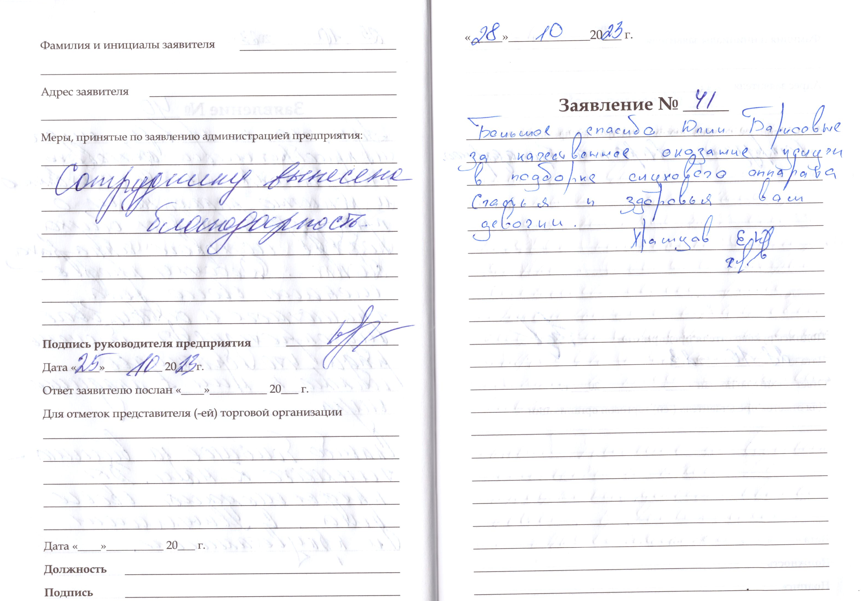 Фамилия и инициалы заявителя
Адрес заявителя
Меры, принятые по заявлению администрацией предприятия:
Сотруднику вынесена
благодарность.
Подпись руководителя предприятия
Дата «25» 10 2023г.
Ответ заявителю послан «____»__________ 20___ г.
Для отметок представителя (-ей) торговой организации
Дата «____»__________ 20___ г.
Должность
Подпись
«28» 10 2023 г.
Заявление № 41
Большое спасибо Юлии Барисовые
за качественное оказание услуги
в подборке слухового аппарата
Счастья и здоровья вам
девочки.